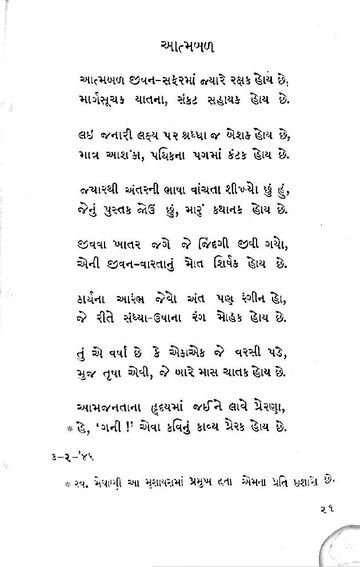 આત્મબળ
આત્મબળ જીવન-સફરમાં જ્યારે રક્ષક હોય છે,
માર્ગસૂચક યાતના, સંકટ સહાયક હોય છે.
લઇ જનારી લક્ષ્ય પર શ્રદ્ધા જ બેશક હોય છે,
માત્ર આશંકા, પથિકના પગમાં કંટક હોય છે.
જ્યારથી અંતરની ભાષા વાંચતા શીખ્યો છું હું,
જેનું પુસ્તક જોઉં છું, મારું કથાનક હોય છે.
જીવવા ખાતર જગે જે જિંદગી જીવી ગયો,
એની જીવન-વારતાનું મોત શિર્ષક હોય છે.
કાર્યના આરંભ જેવો અંત પણ રંગીન હો,
જે રીતે સંધ્યા-ઉષાના રંગ મોહક હોય છે.
તું એ વર્ષા છે કે એકાએક જે વરસી પડે,
મુજ તૃષા એવી, જે બારે માસ ચાતક હોય છે.
આમજનતાના હૃદયમાં જઈને લાવે પ્રેરણા,
* હે, ‘ગની !’ એવા કવિનું કાવ્ય પ્રેરક હોય છે.
૩-૨-’૪૬
* સ્વ. મેઘાણી આ મુશાયરામાં પ્રમુખ હતા એમના પ્રતિ ઇશારો છે.
૨૧